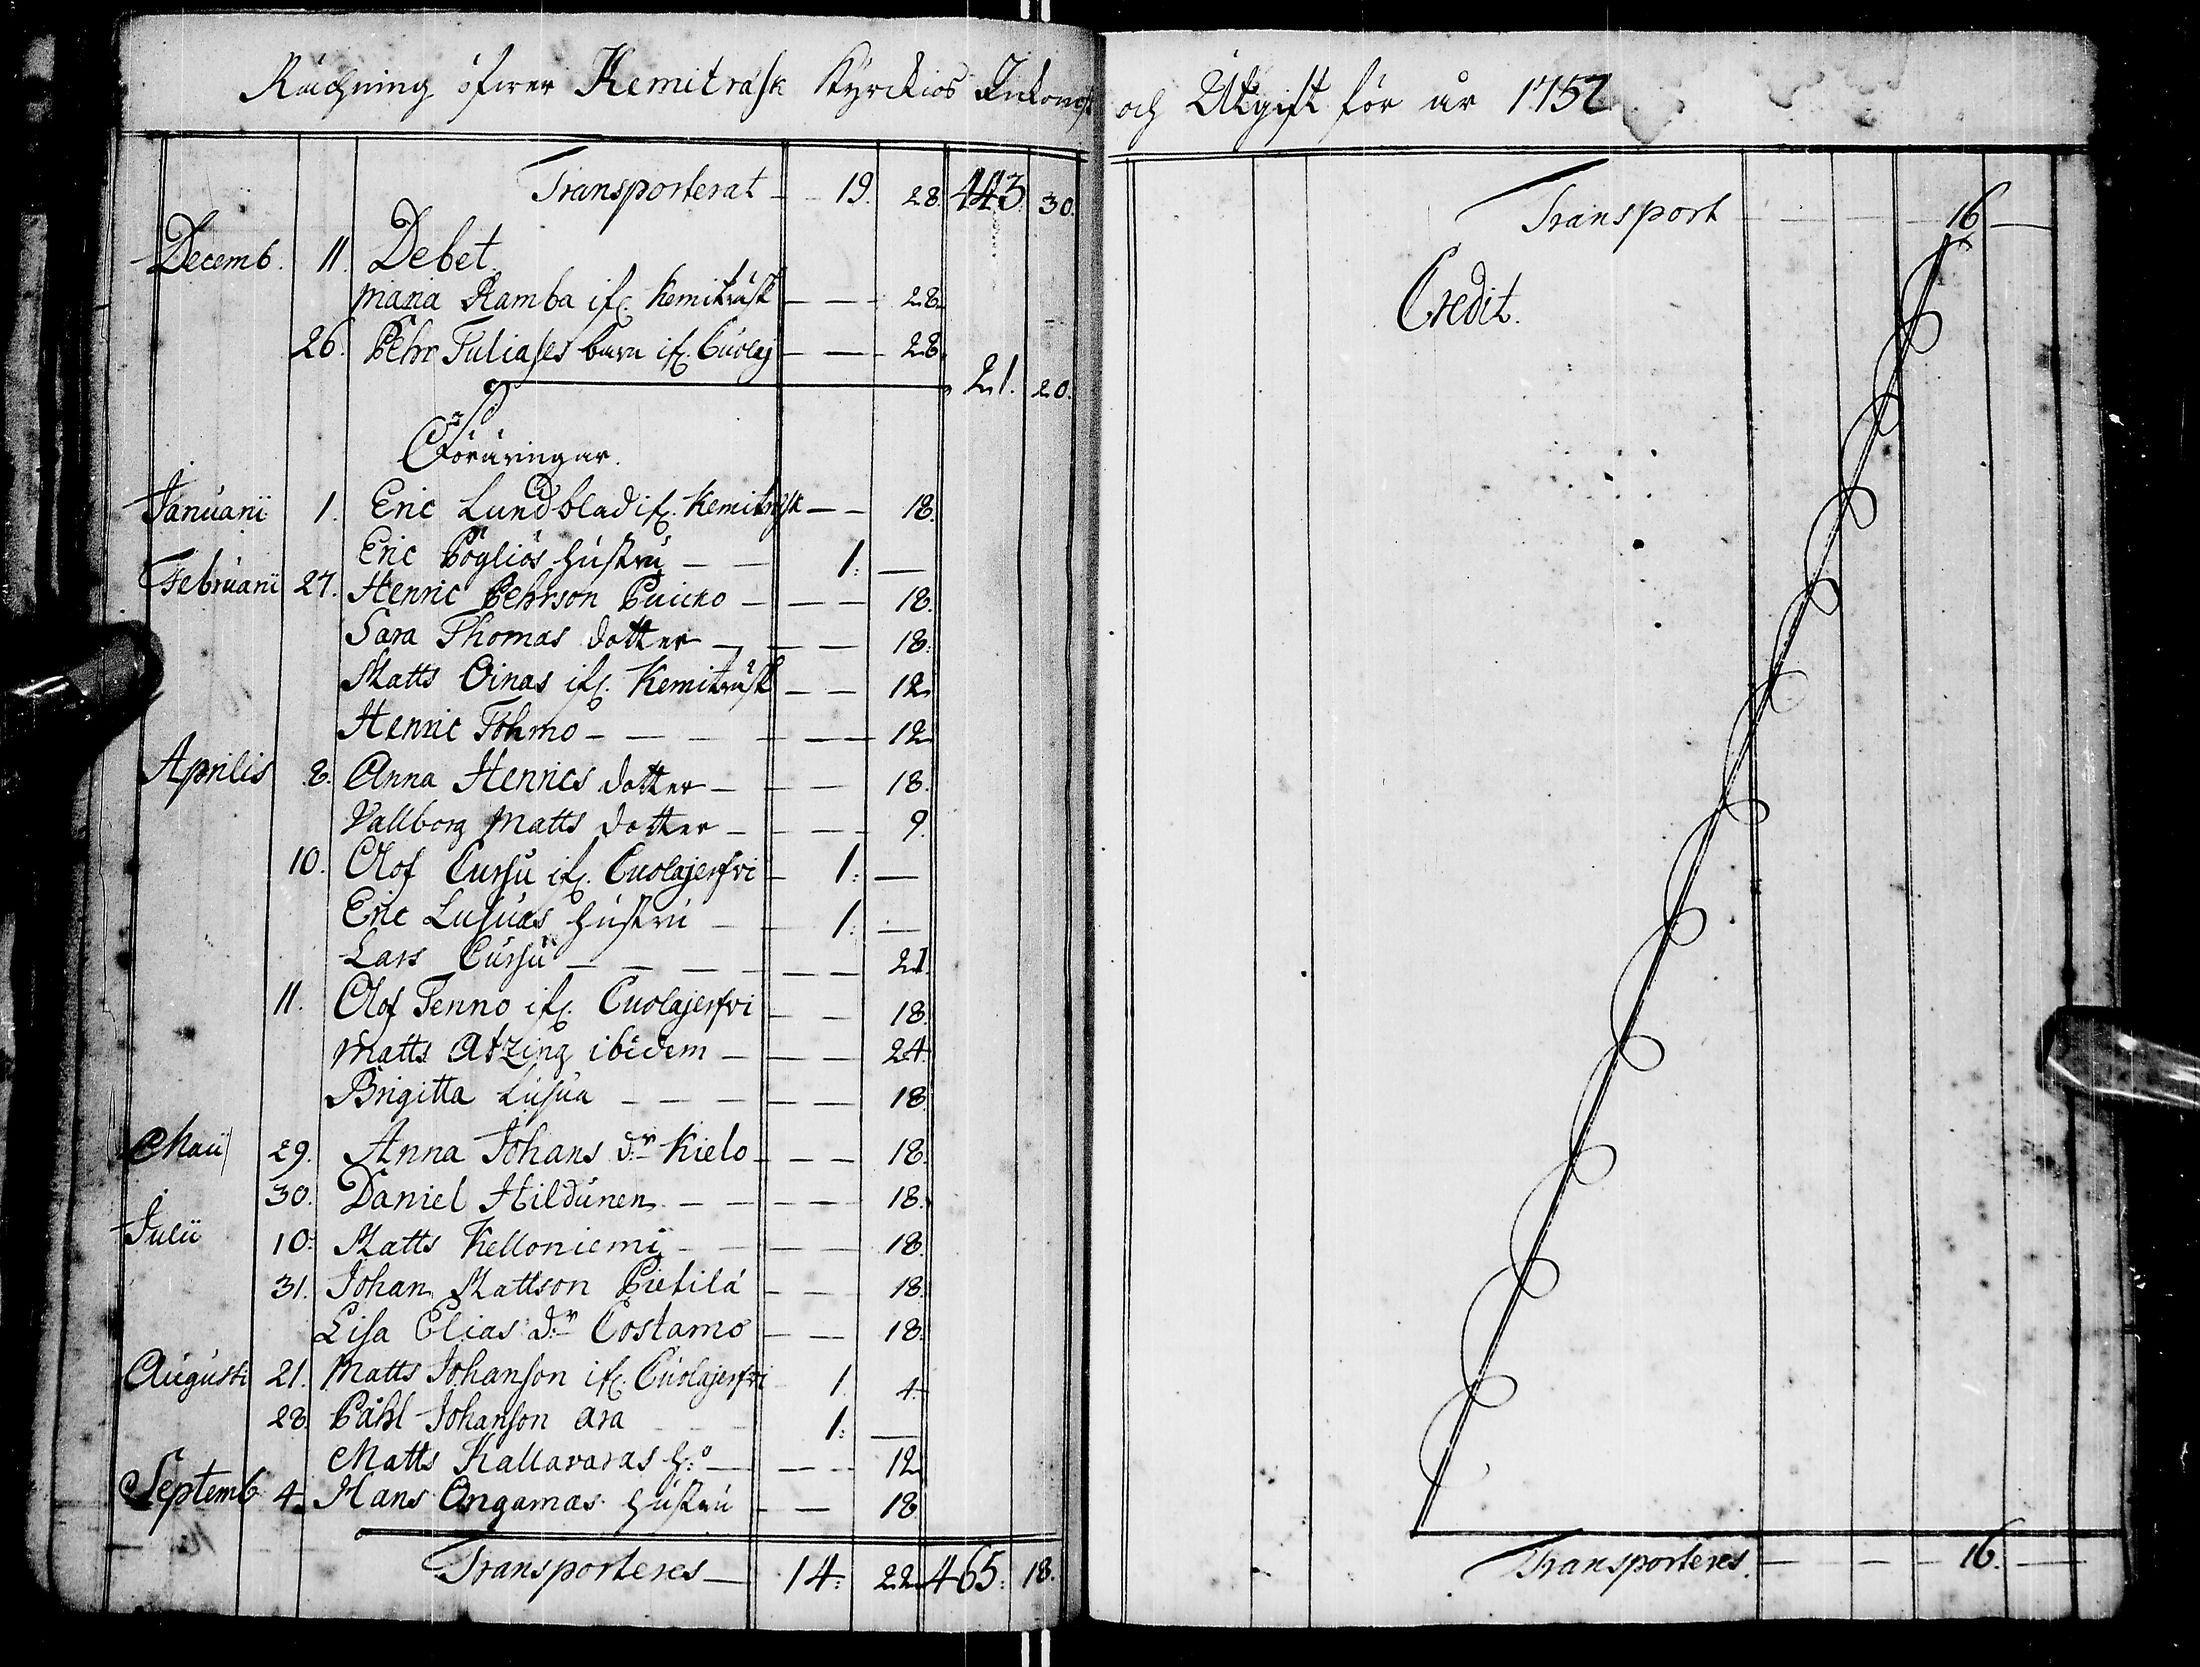 Räckning öfwer Kemiträsk Kyrckios Inkomst och Utgift för år 1752
Transporterat - 19. 28. 443. 30.
Decemb. 11. Debet.
Maria Ramba if. Kemiträsk - - 28.
26. Pehr Tuliases barn if. Cuolaj - - 28.
21. 20.
Föräringar.
Januarii 1. Eric Lundblad if. Kemiträsk - - 18.
Eric Pöyliös hustru - - 1: -
Februarii 27. Henric Pehrson Puicko - - - 18.
Sara Thomas dotter - - - 18.
Matts Oinas if. Kemiträsk - - 12
Henric Tohmo - - - - - - 12
Aprilis 8. Anna Henrics dotter - - - 18.
Vallborg Matts dotter - - - 9.
10. Olof Cursu if. Cuolajerfvi - 1: -
Eric Lusuas hustru - - 1: -
Lars Cursu - - - - - - 21.
11. Olof Tenno if. Cuolajerfvi - - 18.
Matts Atzing ibidem - - - 24.
Brigitta Lusua - - - - - 18.
Maii 29. Anna Johans d:r Kielo - - - 18.
30. Daniel Hildunen - - - - 18.
Julii 10: Matts Kelloniemi - - - - 18.
31. Johan Mattson Pietilá - - 18.
Lisa Elias d:r Costamo - - 18.
Augusti 21. Matts Johanson if. Cuolajerfvi 1. 4.
28. Påhl Johanson Ara - - 1: -
Matts Kallavaras h:o - - - 12
Septemb. 4. Hans Ongamas hustru - - 18.
Transporteres - 14: 22. 465: 18.
Transport - - - 16 -
Credit.
Transporteres. - - - 16. -